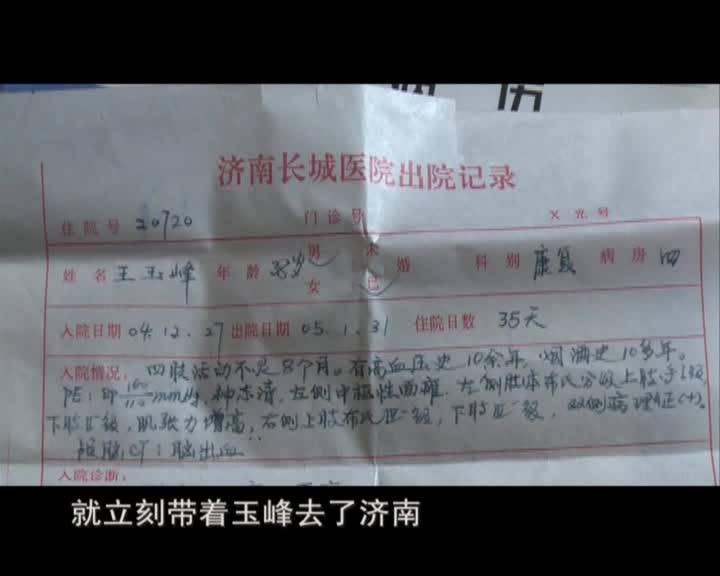 济南长城医院出院记录
住院号 20720 门诊号 X光号
姓名 王玉峰 年龄 38岁 男 女 未 已 婚 科别 康复 病房 四
入院日期 04.12.27 出院日期 05.1.31 住院日数 35天
入院情况: 四肢活动不灵8个月。有高血压史10余年,烟酒史10多年。
PE: BP 160/110 mmHg, 神志清, 左侧中枢性面瘫. 左侧肢体布氏分级上肢
下肢Ⅲ级, 肌张力增高, 右侧上肢布氏Ⅲ级, 下肢Ⅲ级, 双侧病理征(+).
头颅CT: 脑出血
入院诊断:
就立刻带着玉峰去了济南